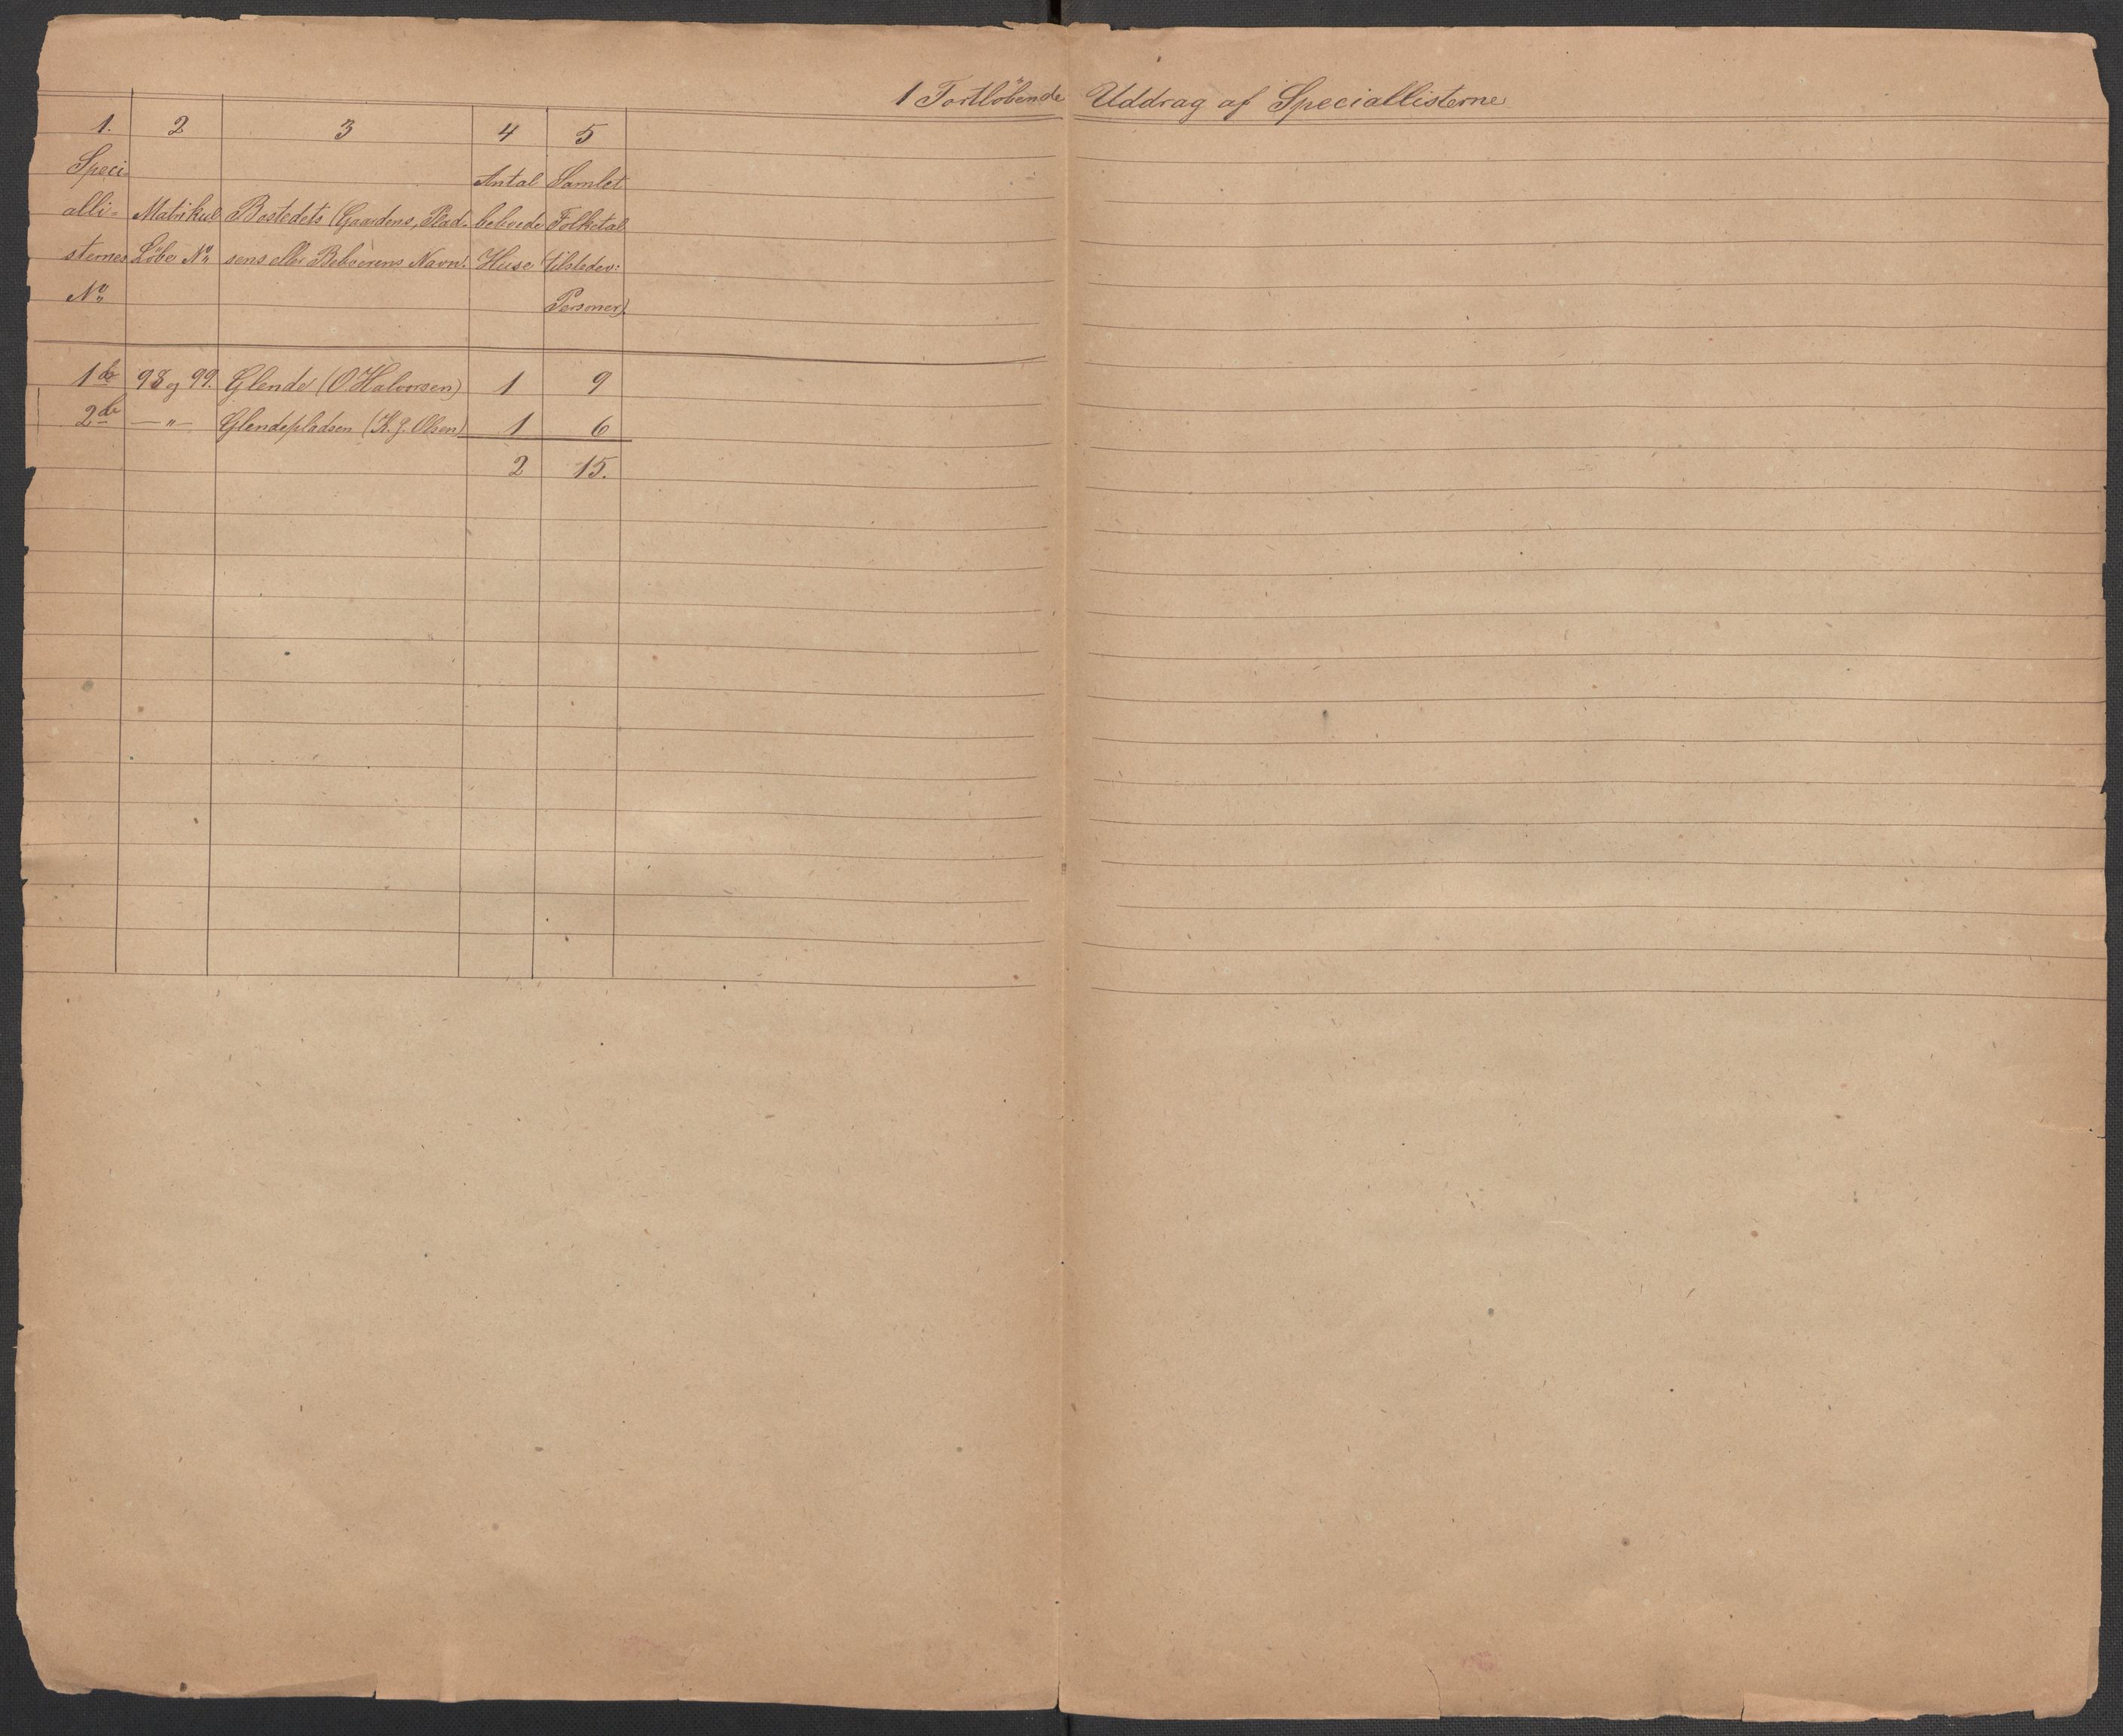 1 Fortlöbende Uddrag af Speciallisterne
1. 2 3 4 5
Speci
Antal Samlet
alli- Matrikul Bostedets (Gaardens, Plad- beboede Folketal
sternes Löbe No sens eller Beboerens Navn. Huse (tilstedev:
No Personer)
1de 98 og 99. Glende (O Halvorsen) 1 9
2de —"— Glendepladsen (K. G. Olsen) 1 6
2 15.